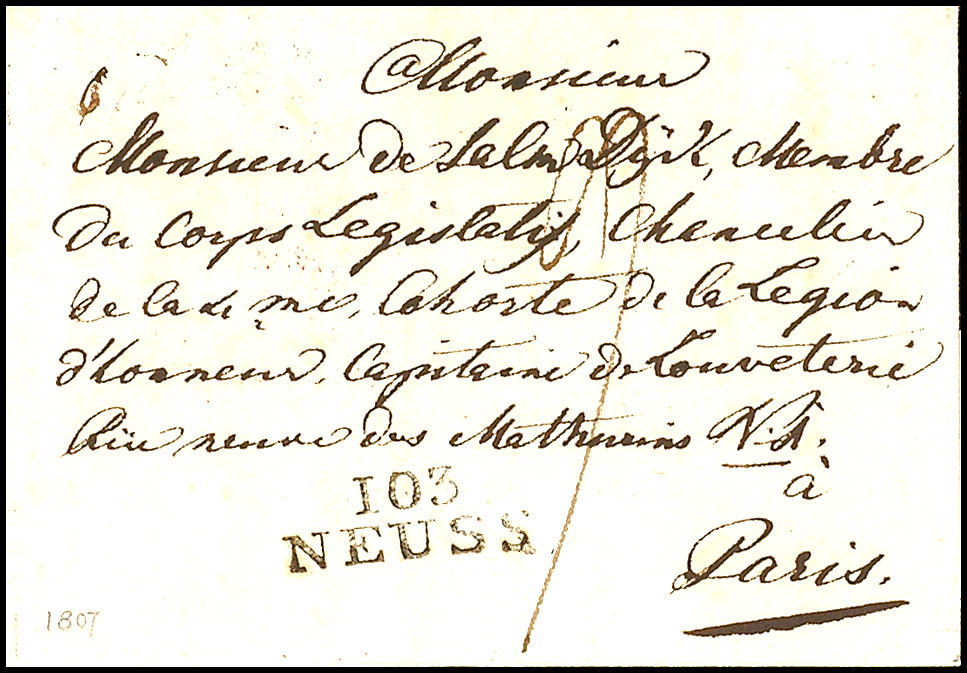 A Monsieur
Monsieur de Salm Dÿck, Membre
du Corps Legislatif, Chancelier
de la 4me, Cohorte de la Legion
d'honneur, Capitaine de Louveterie
Rüe neuve des Mathurins
à
Paris.
103
NEUSS
1807